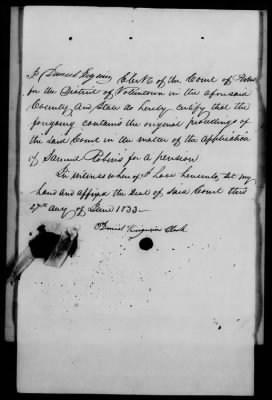 I Daniel Kegwin Clerk of the Court of Probate
for the District of Voluntown in the aforesaid
County, and State do hereby certify that the
foregoing contains the original proceedings of
the said Court in the matter of the Application
of Samuel Robins for a pension
In witness whereof I have hereunto set my
hand and affixed the Seal of said Court this
27th day of June 1833—
Daniel Clerk